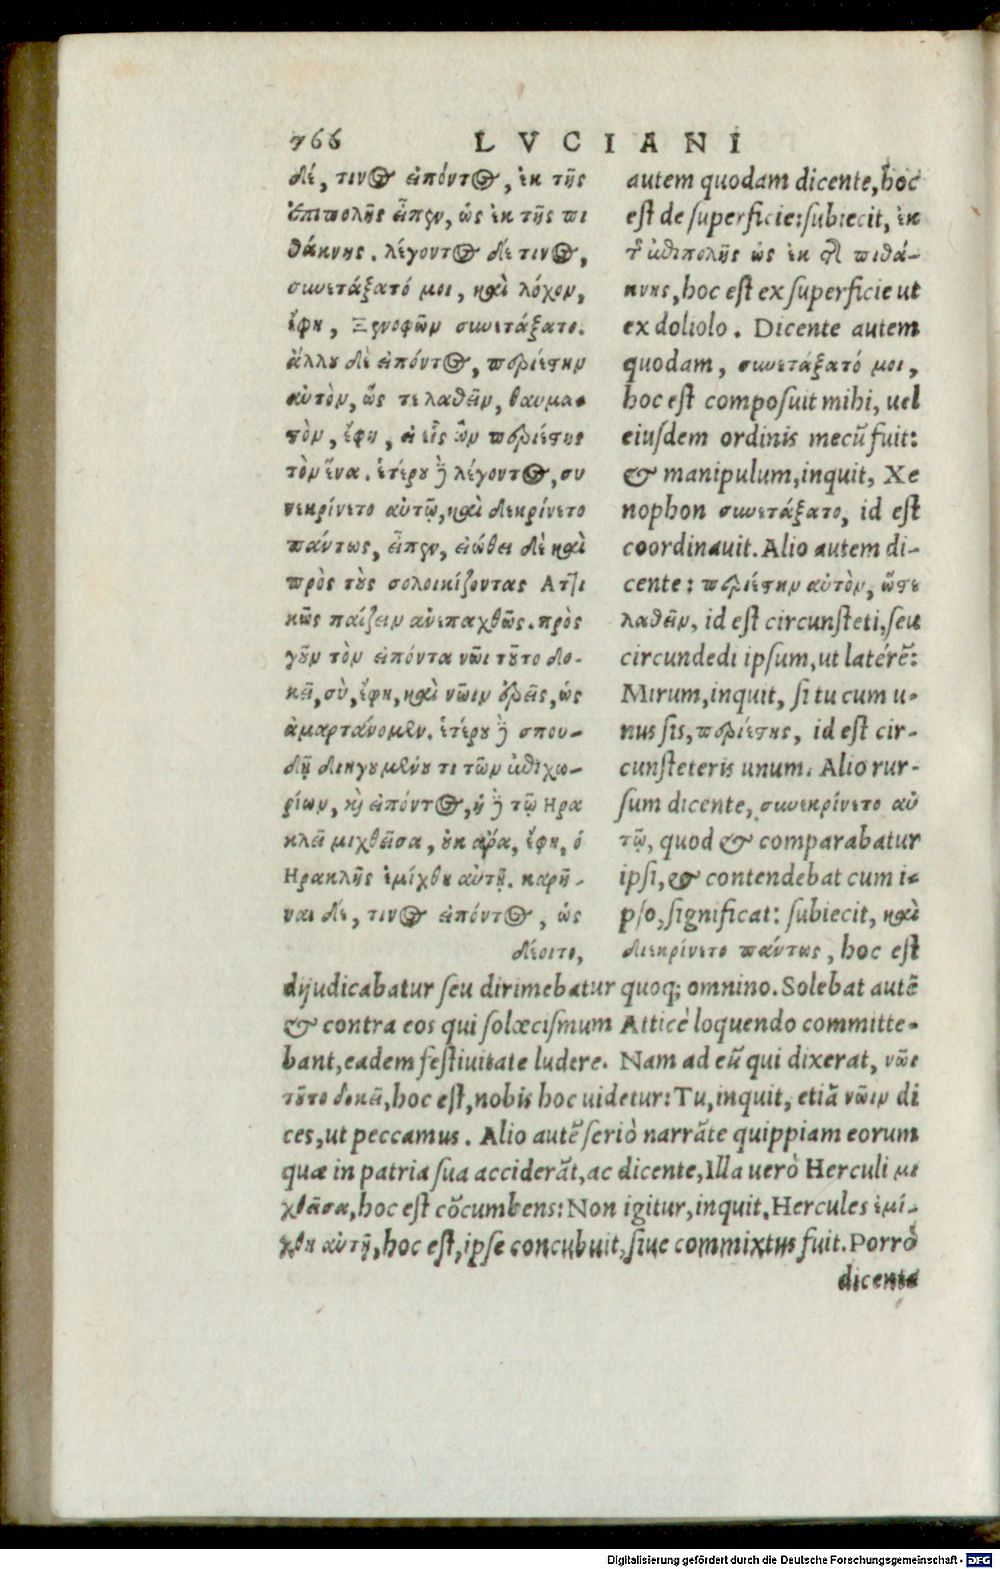 766 LVCIANI
δέ, τινος εἰπόντος, ἐκ τῆς
ἐπιπολῆς εἶπεν, ὡς ἐκ τῆς πι
θάκνης. λέγοντος δέ τινος,
συνετάξατό μοι, καὶ λόχον,
ἔφη, Ξενοφῶν συνετάξατο.
ἄλλου δὲ εἰπόντος, περιέστην
αὐτὸν, ὥς τε λαθεῖν, θαυμα-
στὸν, ἔφη, εἰ εἷς ὢν περιέστης
τὸν ἕνα. ἑτέρου δὲ λέγοντος, συ
νεκρίνετο αὐτῷ, καὶ διεκρίνετο
πάντως, εἶπεν, εἰώθει δὲ καὶ
πρὸς τοὺς σολοικίζοντας Αττι
κῶς παίζειν ἀνεπαχθῶς. πρὸς
γοῦν τὸν εἰπόντα νῶι τοῦτο δο-
κεῖ, σὺ, ἔφη, καὶ νῶιν ἐρεῖς, ὡς
ἁμαρτάνομεν. ἑτέρου δὲ σπου-
δῇ διηγουμένου τι τῶν ἐπιχω-
ρίων, καὶ εἰπόντος, ἡ δὲ τῷ Ηρα
κλεῖ μιχθεῖσα, οὐκ ἄρα, ἔφη, ὁ
Ηρακλῆς ἐμίχθη αὐτῇ. καρῆ-
ναι δέ, τινος εἰπόντος, ὡς
δέοιτο,
autem quodam dicente, hoc
est de superficie: subiecit, ἐκ
τῆς ἐπιπολῆς ὡς ἐκ τῆς πιθά-
κνης, hoc est ex superficie ut
ex doliolo. Dicente autem
quodam, συνετάξατό μοι,
hoc est composuit mihi, uel
eiusdem ordinis mecũ fuit:
& manipulum, inquit, Xe
nophon συνετάξατο, id est
coordinauit. Alio autem di-
cente: περιέστην αὐτὸν, ὥστε
λαθεῖν, id est circunsteti, seu
circundedi ipsum, ut laterẽ:
Mirum, inquit, si tu cum u-
nus sis, περιέστης, id est cir-
cunsteteris unum. Alio rur-
sum dicente, συνεκρίνετο αὐ
τῷ, quod & comparabatur
ipsi, & contendebat cum i-
pso, significat: subiecit, καὶ
διεκρίνετο πάντως, hoc est
dijudicabatur seu dirimebatur quoq; omnino. Solebat autẽ
& contra eos qui solœcismum Atticè loquendo committe-
bant, eadem festiuitate ludere. Nam ad eũ qui dixerat, νῶι
τοῦτο δοκεῖ, hoc est, nobis hoc uidetur: Tu, inquit, etiã νῶιν di
ces, ut peccamus. Alio autẽ seriò narrãte quippiam eorum
quæ in patria sua acciderãt, ac dicente, Illa uerò Herculi μι
χθεῖσα, hoc est cõcumbens: Non igitur, inquit, Hercules ἐμί-
χθη αὐτῇ, hoc est, ipse concubuit, siue commixtus fuit. Porrò
dicente
Digitalisierung gefördert durch die Deutsche Forschungsgemeinschaft - DFG